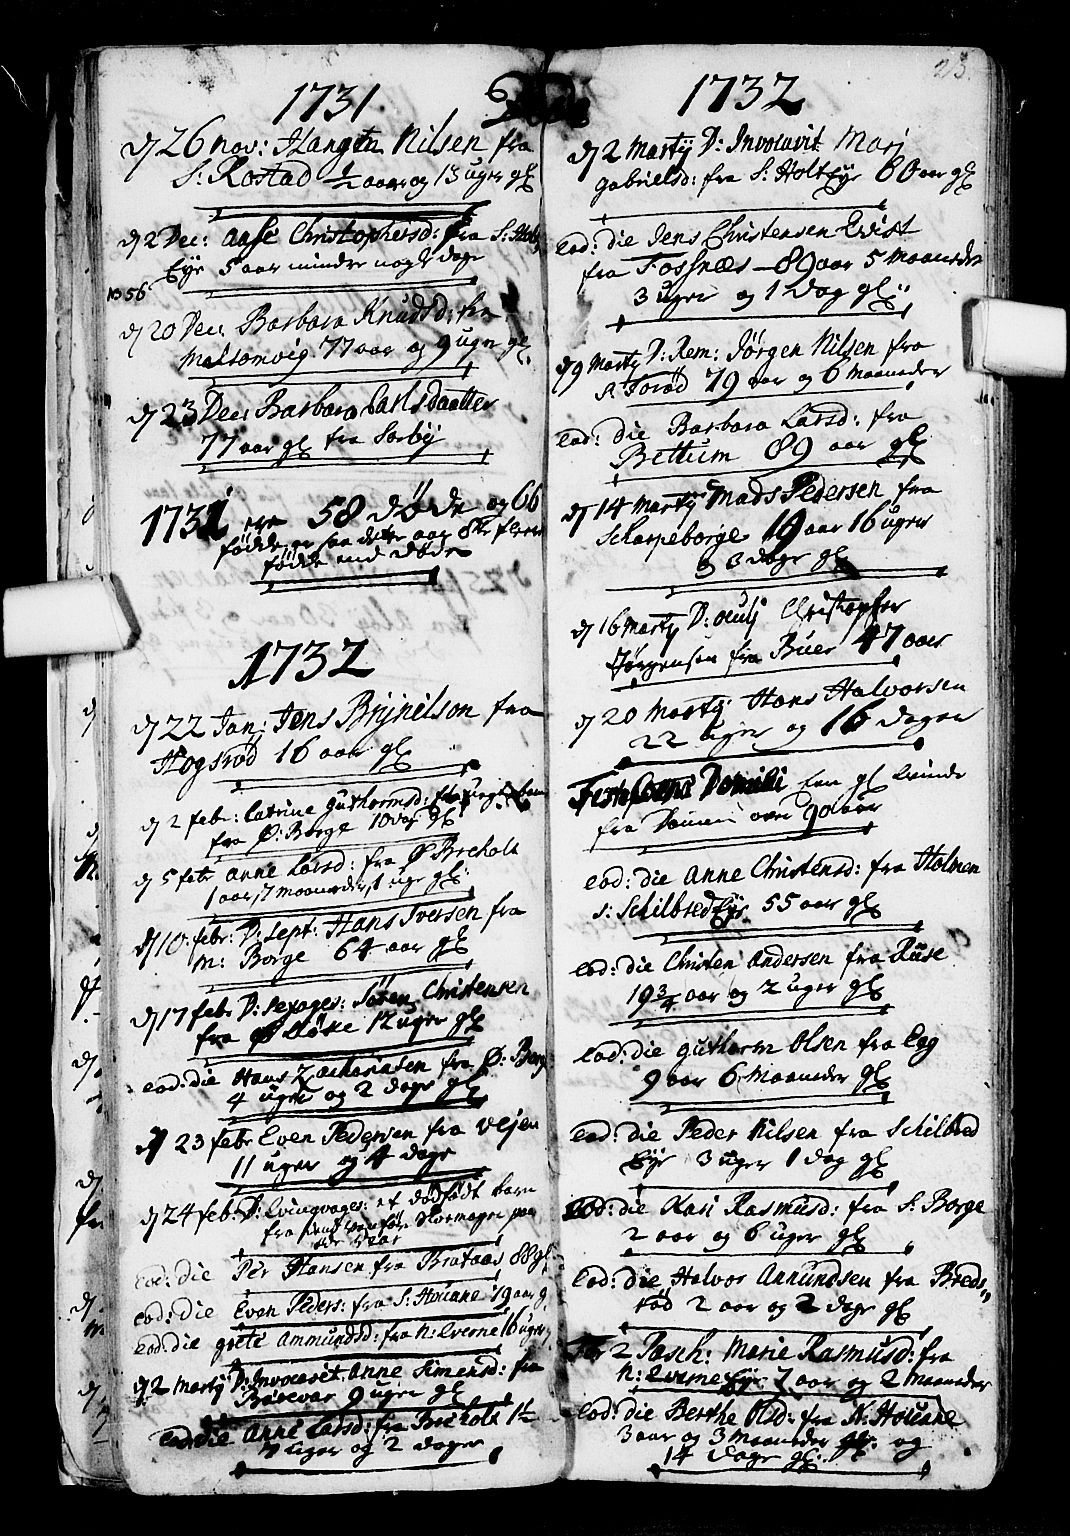 1731.
dj 26 nov: Hangen Nilsen fra
S: Rostad ½ aar og 13 uger gl
dj 2 Dec: Aase Christophersd: fra S: Holt
Eyr 5 aar mindre nogle dage
1656
dj 20 Dec: Barbara Knudsd: fra
Melsomvig 77 aar og 9 uger gl
dj 23 Dec: Barbara Carlsdaatter
77 aar gl fra Sorby
1731 ere 58 døde og 66
fødde er saa dette aar 8te flere
fødde end døde
1732
dj 22 Jan: Jens Brynilson fra
Hogsrød 16 aar gl
dj 2 febr: Catrine Guthormsd:
fra Ø: Borge 10 aar gl
dj 5 febr Anne Larsd: fra Ø Breholt
1 aar, 7 maaneder, 1 uge gl:
dj 10 febr: D: Sept: Hans Iversen fra
M: Borge 64 aar gl
dj 17 febr D: Sexages: Søren Christensen
fra Ø Støke 12 uger gl
Eod: die Hans Zachariasen fra Ø: Borge
4 uger og 2 dage gl
dj 23 febr Even Pedersen fra Vejen
11 uger og 4 dage
dj 24 feb: D: Qvinqvages: et dødfødt barn
fra
Eod: die Per Hansen fra Brataas 88 gl
Eod: die Even Peders: fra S: Houane 19 aar g
Eod: die Grete Ammundsd: fra N: Everne 16 uger
dj 2 Marty D: Invocavit Anne Simensd: fra
Børevar 9 uger gl
Eod: die Anne Larsd: fra Breholt 1½
7 uger og 2 dage
23.
1732
dj 2 Marty D: Invocavit Mari
Gabrielsd: fra S: Holt Eyr 60 aar gl
Eod: die Jens Christensen Qvist
fra Fossnæs 89 aar 5 maaneder
3 uger og 1 dag gl:
dj 9 Marty D: Rem: Jørgen Nilsen fra
A Forød 79 aar og 6 maaneder
Eod: die Barbara Larsd: fra
Bettum 89 aar gl
dj 14 Marty Mads Pedersen fra
Scharpeborge 19 aar 16 uger
og 3 dage gl
dj 16 Marty D: Oculj Christopher
Jørgensen fra Buer 47 aar
dj 20 Marty Hans Halvorsen
22 uger og 16 dage
Festo Coena Domini een gl Qvinde
fra over 90 aar
Eod: die Anne Christensd: fra Holmen
S: Schilbred Eyr 55 aar gl
Eod: die Christen Andersen fra Ruse
19¾ aar og 2 uger gl
Eod: die Guthorm Olsen fra Egg
9 aar 6 maaneder gl
Eod: die Peder Nilsen fra Schilbred
Eyr 3 uger 1 dag gl
Eod: die Kari Rasmusd: fra S: Borge
2 aar og 6 uger gl
Eod: die Halvor Annundsen fra Breds
rød 2 aar og 2 dage gl
Fer 2 Pasch: Marie Rasmusd: fra
N: Everne Eyr 7 aar og 2 maaneder
Eod: die Berthe Olsd: fra N: Houane
3 aar og 3 maaneder og
14 dage gl: